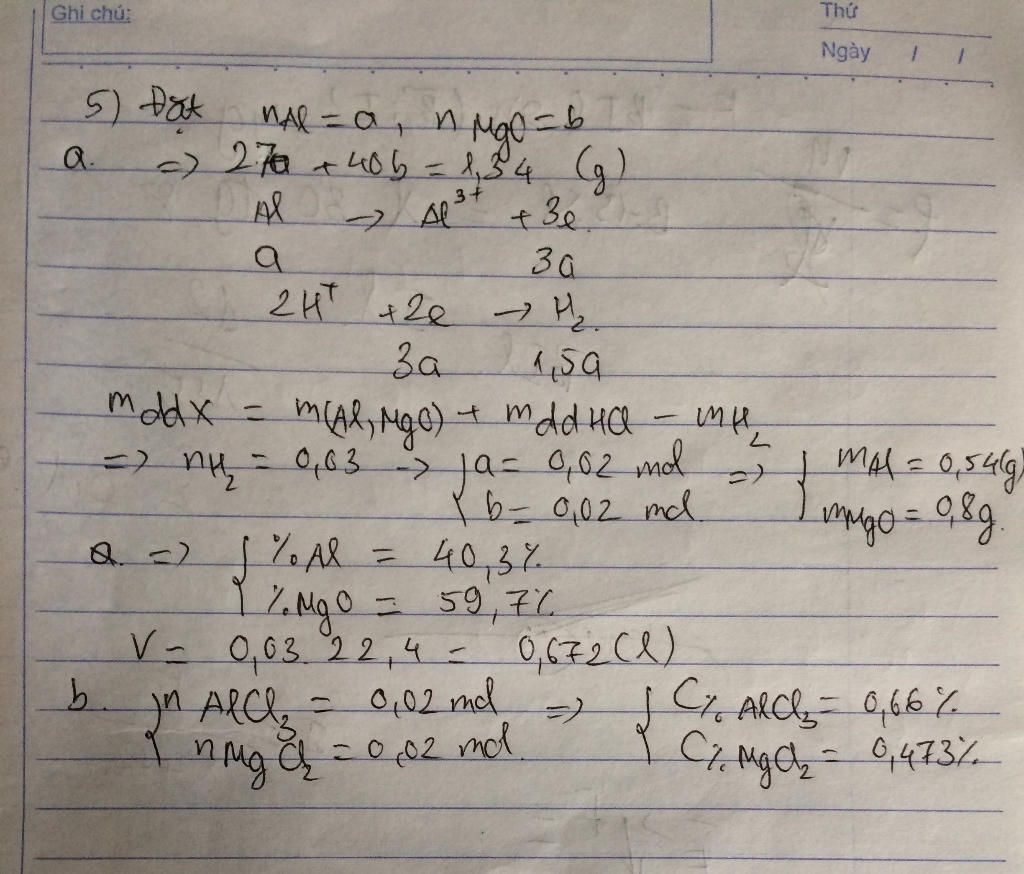 Ghi chú:
Thứ
Ngày / /
5) Đặt nAl = a, nMgO = b
a. => 27a + 40b = 1,34 (g)
Al → Al³⁺ + 3e
a 3a
2H⁺ + 2e → H₂.
3a 1,5a
mddX = m(Al, MgO) + mddHCl - mH₂
=> nH₂ = 0,03 → { a = 0,02 mol => { mAl = 0,54(g)
b = 0,02 mol. mMgO = 0,8g.
a. => { %Al = 40,3%
%MgO = 59,7%
V = 0,03. 22,4 = 0,672(l)
b. { nAlCl₃ = 0,02 mol => { C% AlCl₃ = 0,66%
nMgCl₂ = 0,02 mol. C% MgCl₂ = 0,473%